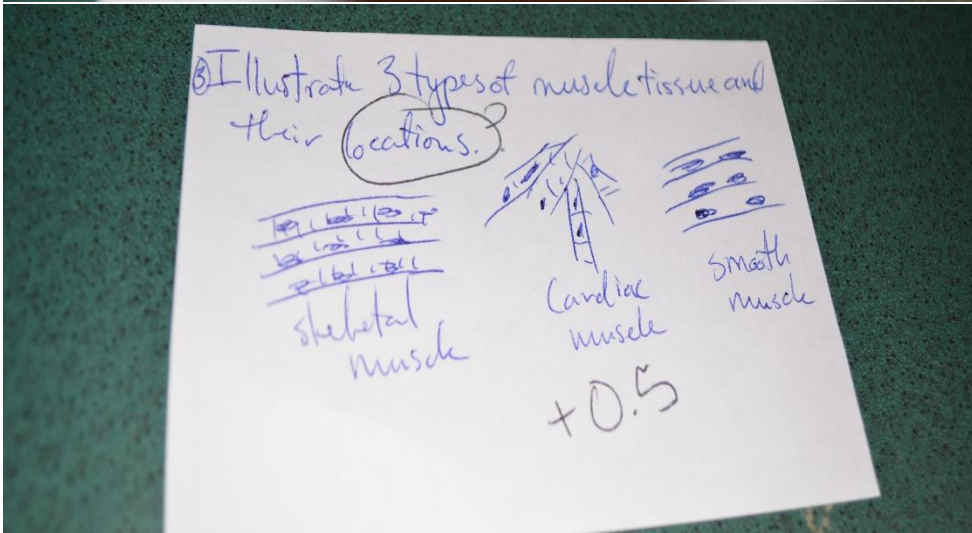 ③ Illustrate 3 types of muscle tissue and
their locations. ?
skeletal
muscle
Cardiac
muscle
smooth
muscle
+0.5